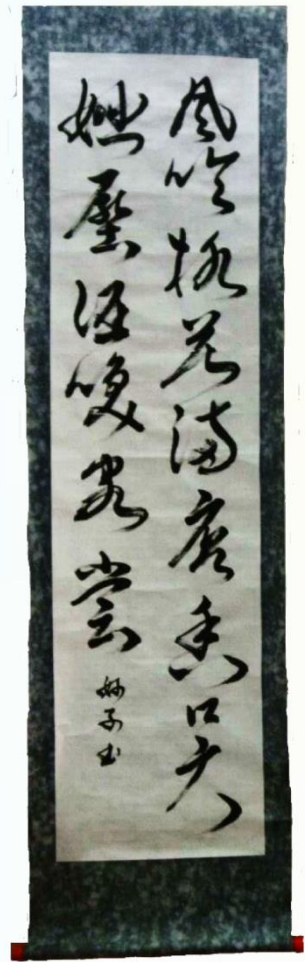 風吹柳花滿店香吳
姬壓酒喚客嘗
妙子書